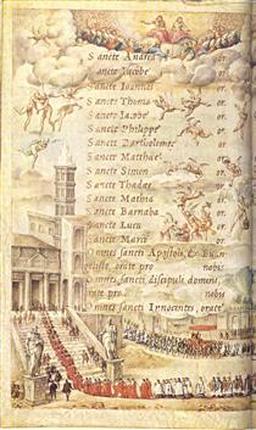 Sancte Andrea or.
Sancte Jacobe or.
Sancte Joannes or.
Sancte Thoma or.
Sancte Jacobe or.
Sancte Philippe or.
Sancte Bartholomee or.
Sancte Matthaee or.
Sancte Simon or.
Sancte Thadae or.
Sancte Mathia or.
Sancte Barnaba or.
Sancte Luca or.
Sancte Marce or.
Omnes sancti Apostoli, et Euan
gelistae, orate pro nobis:
Omnes sancti discipuli domini,
orate pro nobis
Omnes sancti Innocentes, orate